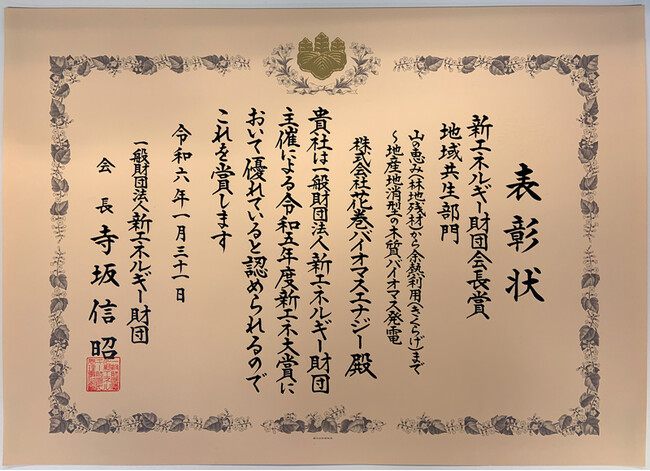 表彰状
新エネルギー財団会長賞
地域共生部門
山の恵み(林地残材)から余熱利用(きくらげ)まで
～地産地消型の木質バイオマス発電
株式会社花巻バイオマスエナジー殿
貴社は一般財団法人新エネルギー財団
主催による令和五年度新エネ大賞に
おいて優れていると認められるので
これを賞します
令和六年一月三十一日
一般財団法人新エネルギー財団
会長寺坂信昭